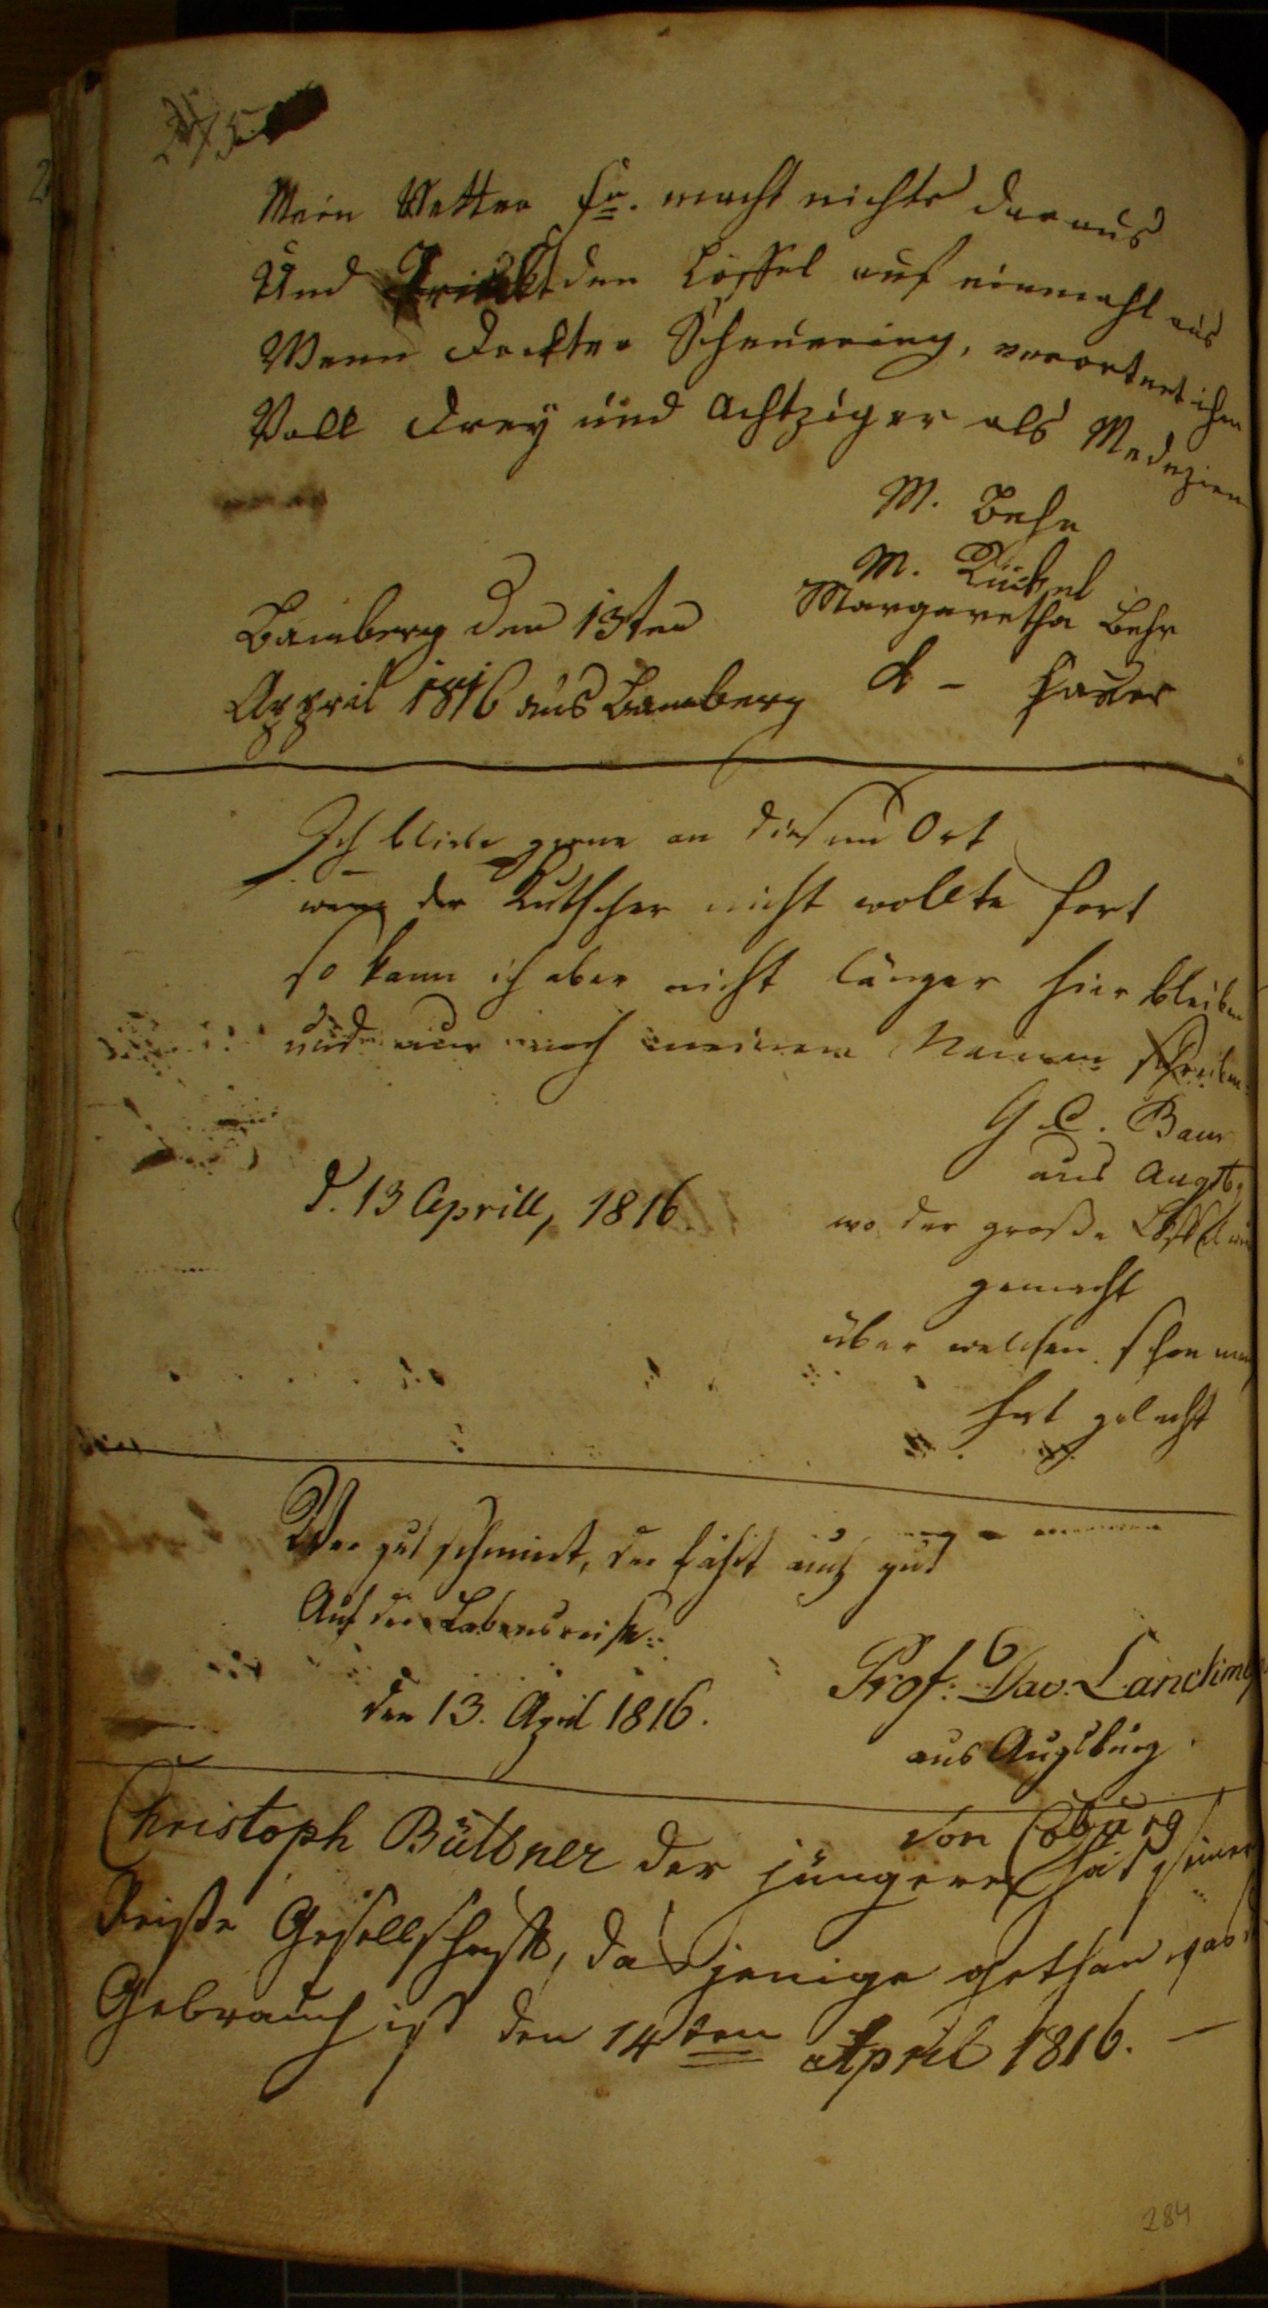 Mein Vetter Fr. macht nichts daraus
Und Trinkt den Löffel auf einmahl aus
Wenn Dockter Scheuering, verortnet ihm
Voll Drey und Achtziger als Medezien
M. Behr
M. Kückel
Margaretha Behr
Bamberg den 13ten
Appril 1816 aus Bamberg
Ich bliebe gerne an diesem Ort
wenn der Kutscher nicht wollte fort
so kann ich aber nicht länger hier bleiben
und nur noch meinen Namen schreiben
G C. Baur
aus Augsb.
d. 13 Aprill, 1816.
wo der große Löffel
gemacht
über welchen schon
hat gelacht
Wer gut schmiert, der fährt auch gut
Auf der Lebensreise.
den 13. April 1816.
Prof: Dav.
aus Augsburg.
von Coburg
Christoph Büttner der jüngere hat seiner
Reiße Gesellschaft, dasjenige gethan was
Gebrauch ist den 14ten April 1816. —
284